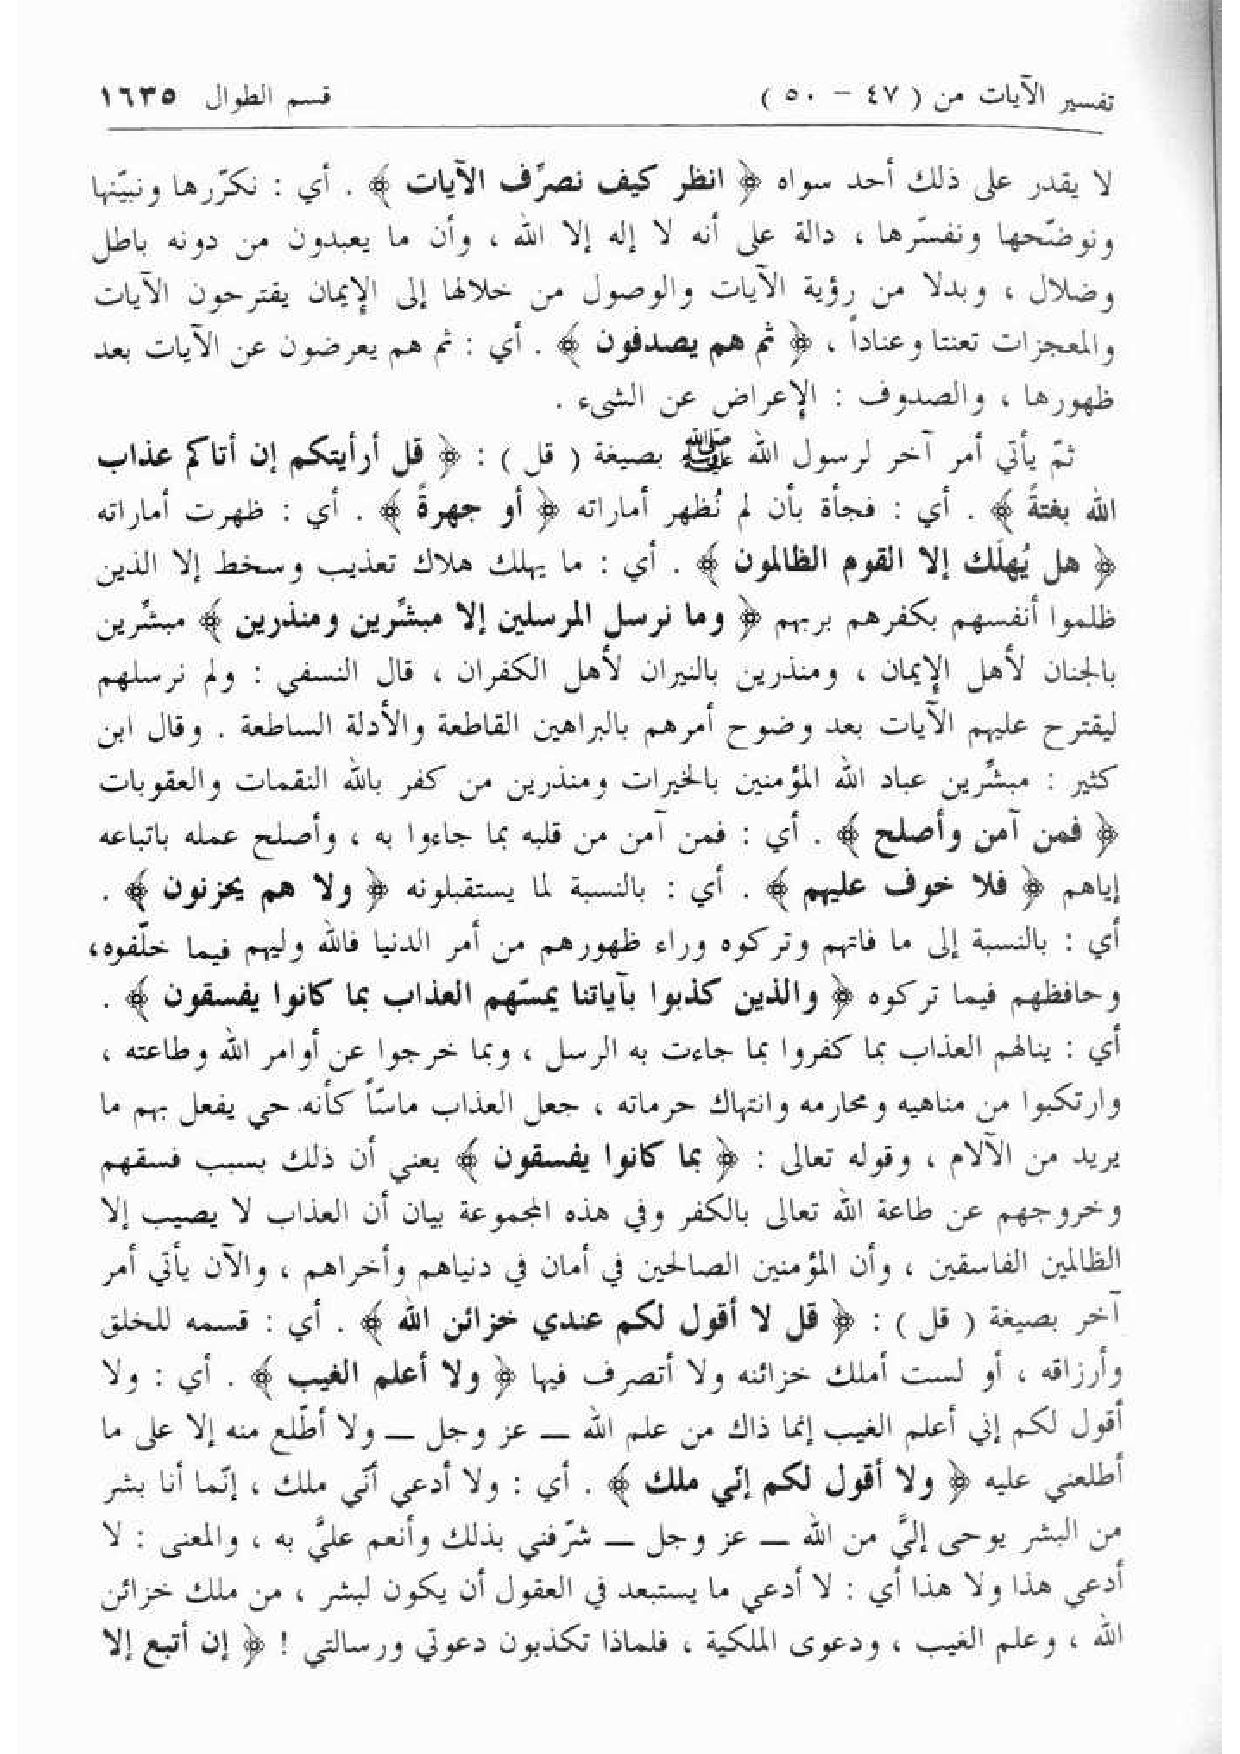 تفسير الآيات من ( ٤٧ - ٥٠ ) قسم الطوال ١٦٣٥
لا يقدر على ذلك أحد سواه ﴿ انظر كيف نصرِّف الآيات ﴾ . أي : نكرّرها ونبيّنها
ونوضّحها ونفسّرها ، دالة على أنه لا إله إلا الله ، وأن ما يعبدون من دونه باطل
وضلال ، وبدلا من رؤية الآيات والوصول من خلالها إلى الإيمان يقترحون الآيات
والمعجزات تعنتا وعناداً ، ﴿ ثم هم يصدفون ﴾ . أي : ثم هم يعرضون عن الآيات بعد
ظهورها ، والصدوف : الإعراض عن الشىء .
ثمّ يأتي أمر آخر لرسول الله ﷺ بصيغة ( قل ) : ﴿ قل أرأيتكم إن أتاكم عذاب
الله بغتةً ﴾ . أي : فجأة بأن لم تُظهر أماراته ﴿ أو جهرةً ﴾ . أي : ظهرت أماراته
﴿ هل يُهلَك إلا القوم الظالمون ﴾ . أي : ما يهلك هلاك تعذيب وسخط إلا الذين
ظلموا أنفسهم بكفرهم بربهم ﴿ وما نرسل المرسلين إلا مبشِّرين ومنذرين ﴾ مبشِّرين
بالجنان لأهل الإيمان ، ومنذرين بالنيران لأهل الكفران ، قال النسفي : ولم نرسلهم
ليقترح عليهم الآيات بعد وضوح أمرهم بالبراهين القاطعة والأدلة الساطعة . وقال ابن
كثير : مبشِّرين عباد الله المؤمنين بالخيرات ومنذرين من كفر بالله النقمات والعقوبات
﴿ فمن آمن وأصلح ﴾ . أي : فمن آمن من قلبه بما جاءوا به ، وأصلح عمله باتباعه
إياهم ﴿ فلا خوف عليهم ﴾ . أي : بالنسبة لما يستقبلونه ﴿ ولا هم يحزنون ﴾ .
أي : بالنسبة إلى ما فاتهم وتركوه وراء ظهورهم من أمر الدنيا فالله وليهم فيما خلّفوه،
وحافظهم فيما تركوه ﴿ والذين كذبوا بآياتنا يمسّهم العذاب بما كانوا يفسقون ﴾ .
أي : ينالهم العذاب بما كفروا بما جاءت به الرسل ، وبما خرجوا عن أوامر الله وطاعته ،
وارتكبوا من مناهيه ومحارمه وانتهاك حرماته ، جعل العذاب ماسّاً كأنه حي يفعل بهم ما
يريد من الآلام ، وقوله تعالى : ﴿ بما كانوا يفسقون ﴾ يعني أن ذلك بسبب فسقهم
وخروجهم عن طاعة الله تعالى بالكفر وفي هذه المجموعة بيان أن العذاب لا يصيب إلا
الظالمين الفاسقين ، وأن المؤمنين الصالحين في أمان في دنياهم وأخراهم ، والآن يأتي أمر
آخر بصيغة ( قل ) : ﴿ قل لا أقول لكم عندي خزائن الله ﴾ . أي : قسمه للخلق
وأرزاقه ، أو لست أملك خزائنه ولا أتصرف فيها ﴿ ولا أعلم الغيب ﴾ . أي : ولا
أقول لكم إني أعلم الغيب إنما ذاك من علم الله — عز وجل — ولا أطّلع منه إلا على ما
أطلعني عليه ﴿ ولا أقول لكم إنّي ملك ﴾ . أي : ولا أدعي أنّي ملك ، إنّما أنا بشر
من البشر يوحى إليَّ من الله — عز وجل — شرّفني بذلك وأنعم عليَّ به ، والمعنى : لا
أدعي هذا ولا هذا أي : لا أدعي ما يستبعد في العقول أن يكون لبشر ، من ملك خزائن
الله ، وعلم الغيب ، ودعوى الملكية ، فلماذا تكذبون دعوتي ورسالتي ! ﴿ إن أتبع إلا